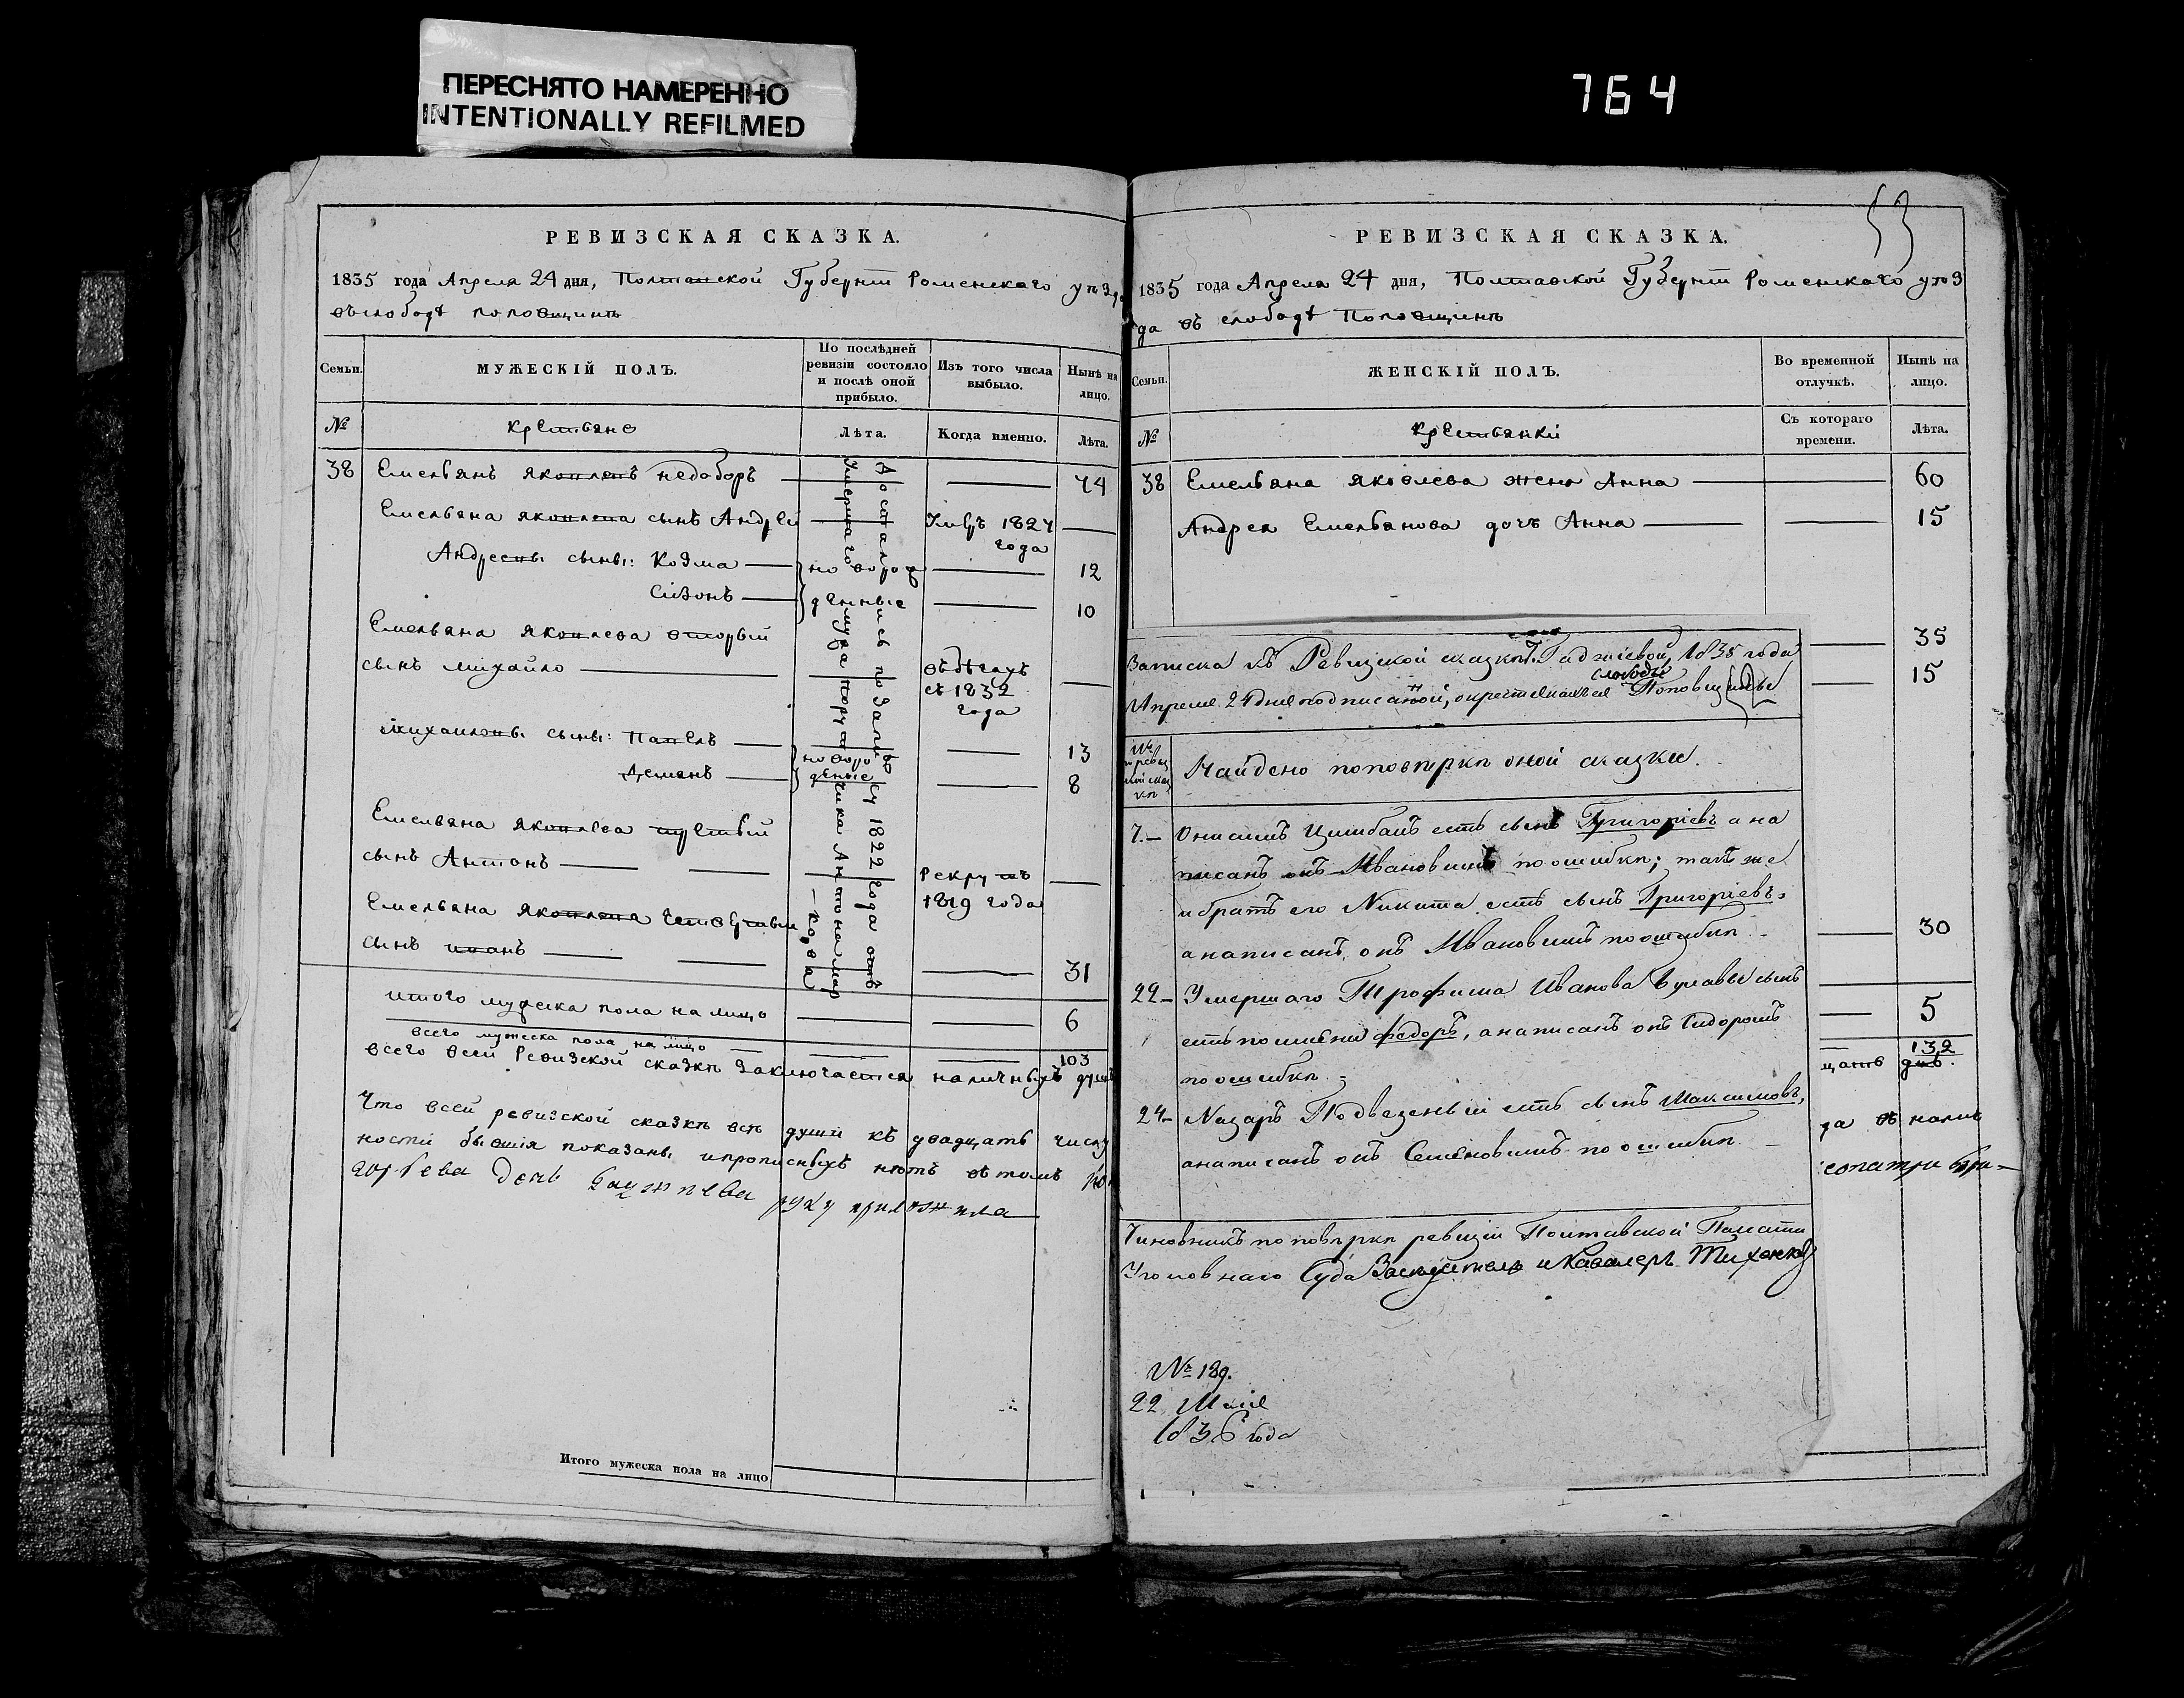 ПЕРЕСНЯТО НАМЕРЕННО
INTENTIONALLY REFILMED
764
РЕВИЗСКАЯ СКАЗКА.
1835 года Апреля 24 дня, Полтавской Губернiи Роменскаго уѣзда
въ слободѣ Поповщинѣ
Семьи.
МУЖЕСКІЙ ПОЛЪ.
По послѣдней ревизіи состояло и послѣ оной прибыло.
Изъ того числа выбыло.
Нынѣ на лицо.
№
Крестьяне
Лѣта.
Когда именно.
Лѣта.
Достались по Записку 1822 года отъ
умершаго мужа Поручика Антона Мар
38 Емельянъ Яковлевъ недоборъ 74
Емельяна Яковлева сынъ Андрей 1827
года
Андреевы сыны: Козма новорож 12
Сизонъ денные 10
Емельяна Яковлева вторый
сынъ Михайло въ бѣгахъ
съ 1832
года
Михайловы сыны: Павелъ новоро 13
Демянъ деные 8
Емельяна Яковлева третый
сынъ Антонъ Рекрутъ
1819 года
Емельяна Яковлева четвертый
сынъ Иванъ 31
итого мужеска пола на лицо 6
всего мужеска пола на лицо 103
всего всей Ревизской сказкѣ заключается наличныхъ душъ
Что всей ревизской сказкѣ всѣ души къ двадцать числу
ности бывшія показаны и прописныхъ нѣтъ въ томъ
руку приложила
Итого мужеска пола на лицо
53
РЕВИЗСКАЯ СКАЗКА.
1835 года Апреля 24 дня, Полтавской Губернiи Роменскаго уѣз
да въ слободѣ Поповщинѣ
Семьи.
ЖЕНСКІЙ ПОЛЪ.
Во временной отлучкѣ.
Нынѣ на лицо.
№
Крестьянки
Съ котораго времени.
Лѣта.
38 Емельяна Яковлева жена Анна 60
Андрея Емельянова дочь Анна 15
35
15
30
5
132
цать днѣ.
да въ налич
Записка къ Ревизской сказкѣ Гаджіевой, 1835 года
Апреля 24 дня подписаной, о крестьянахъ слободы Поповщины
№ ревизской сказки
Найдено по повѣркѣ оной сказки.
7.— Онисимъ Цимбалъ есть сынъ Григоріевъ а на
писанъ онъ Ивановимъ по ошибкѣ; такъ же
и братъ его Никита есть сынъ Григоріевъ,
а написанъ онъ Ивановимъ по ошибкѣ.
22— Умершаго Трофима Иванова Булавы сынъ
есть по имени Федоръ, а написанъ онъ Сидоромъ
по ошибкѣ.
24— Назаръ Подвезеный есть сынъ Максимовъ,
а написанъ онъ Семеновимъ по ошибкѣ.
Чиновникъ по повѣркѣ ревизіи Полтавской Палати
Уголовнаго Суда Заседатель и Кавалеръ
№ 189.
22 Маія
1836 года